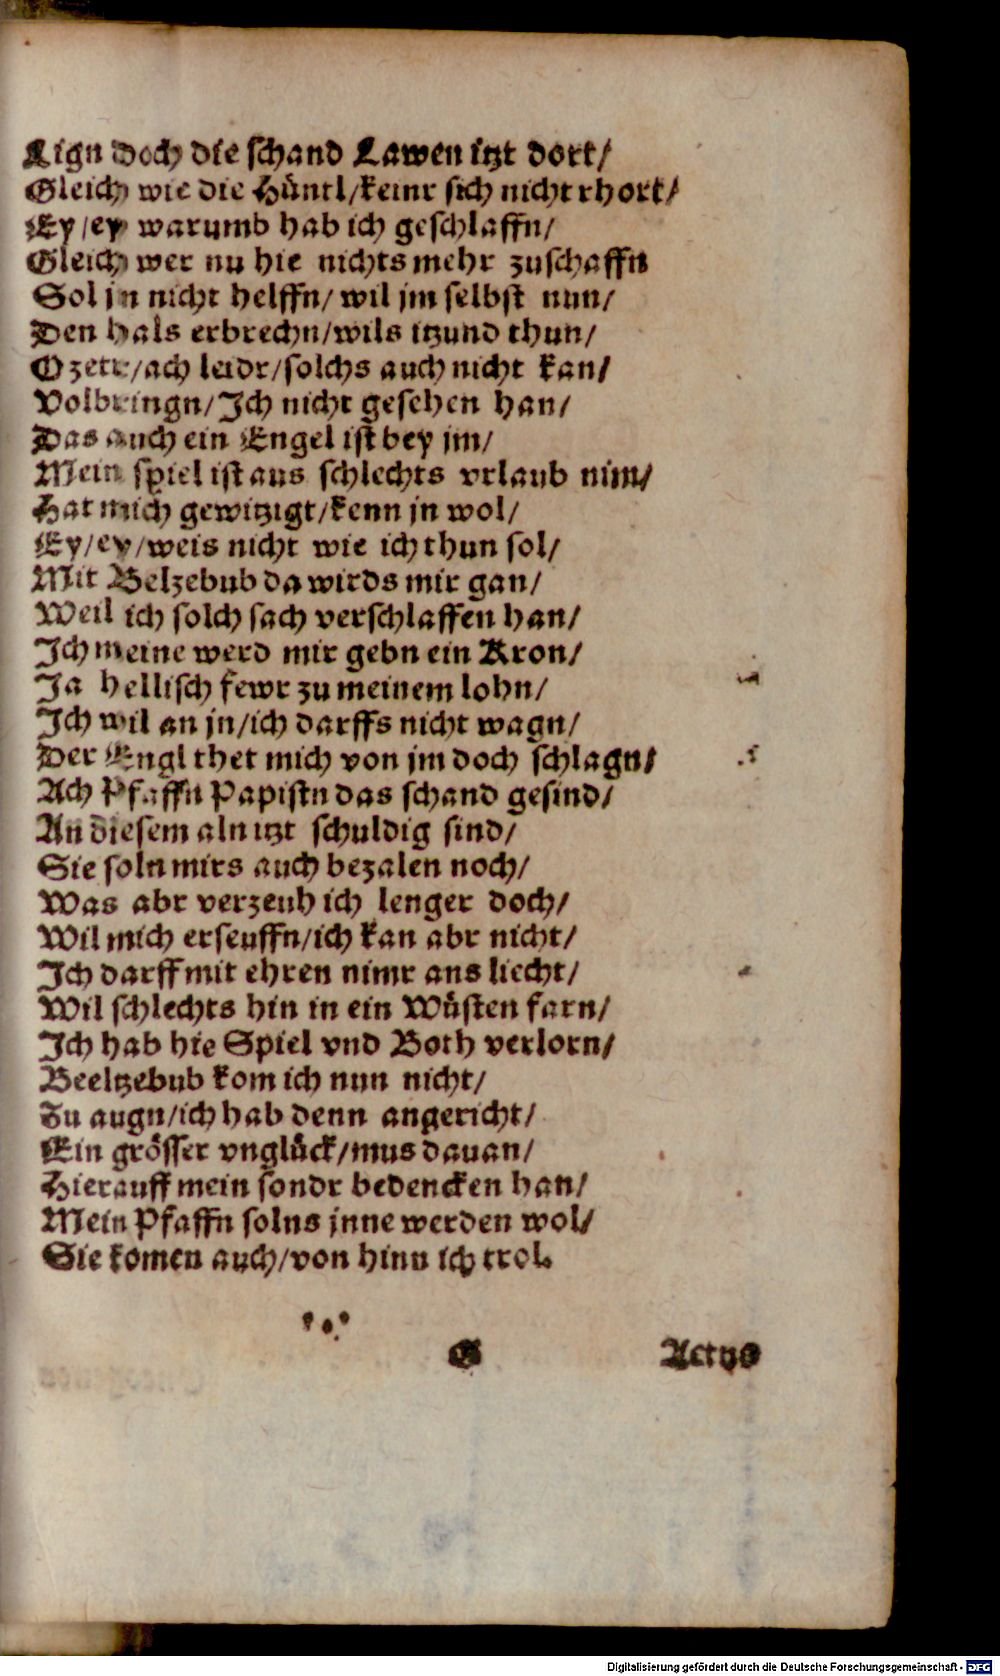 Lign doch die schand Lawen itzt dort/
Gleich wie die Hüntl/keinr sich nicht rhort/
Ey/ey warumb hab ich geschlaffn/
Gleich wer nu hie nichts mehr zuschaffn
Sol jn nicht helffn/ wil jm selbst nun/
Den hals erbrechn/wils itzund thun/
O zetr/ach leidr/solchs auch nicht kan/
Volbringn/Ich nicht gesehen han/
Das auch ein Engel ist bey jm/
Mein spiel ist aus schlechts vrlaub nim/
Hat mich gewitzigt/kenn jn wol/
Ey/ey/weis nicht wie ich thun sol/
Mit Belzebub da wirds mir gan/
Weil ich solch sach verschlaffen han/
Ich meine werd mir gebn ein Kron/
Ja hellisch fewr zu meinem lohn/
Ich wil an jn/ich darffs nicht wagn/
Der Engl thet mich von jm doch schlagn/
Ach Pfaffn Papistn das schand gesind/
An diesem aln itzt schuldig sind/
Sie soln mirs auch bezalen noch/
Was abr verzeuh ich lenger doch/
Wil mich erseuffn/ich kan abr nicht/
Ich darff mit ehren nimr ans liecht/
Wil schlechts hin in ein Wüsten farn/
Ich hab hie Spiel vnd Both verlorn/
Beeltzebub kom ich nun nicht/
Zu augn/ich hab denn angericht/
Ein grösser vnglück/mus dauan/
Hierauff mein sondr bedencken han/
Mein Pfaffn solns jnne werden wol/
Sie komen auch/von hinn ich trol.
G Actus
Digitalisierung gefördert durch die Deutsche Forschungsgemeinschaft - DFG